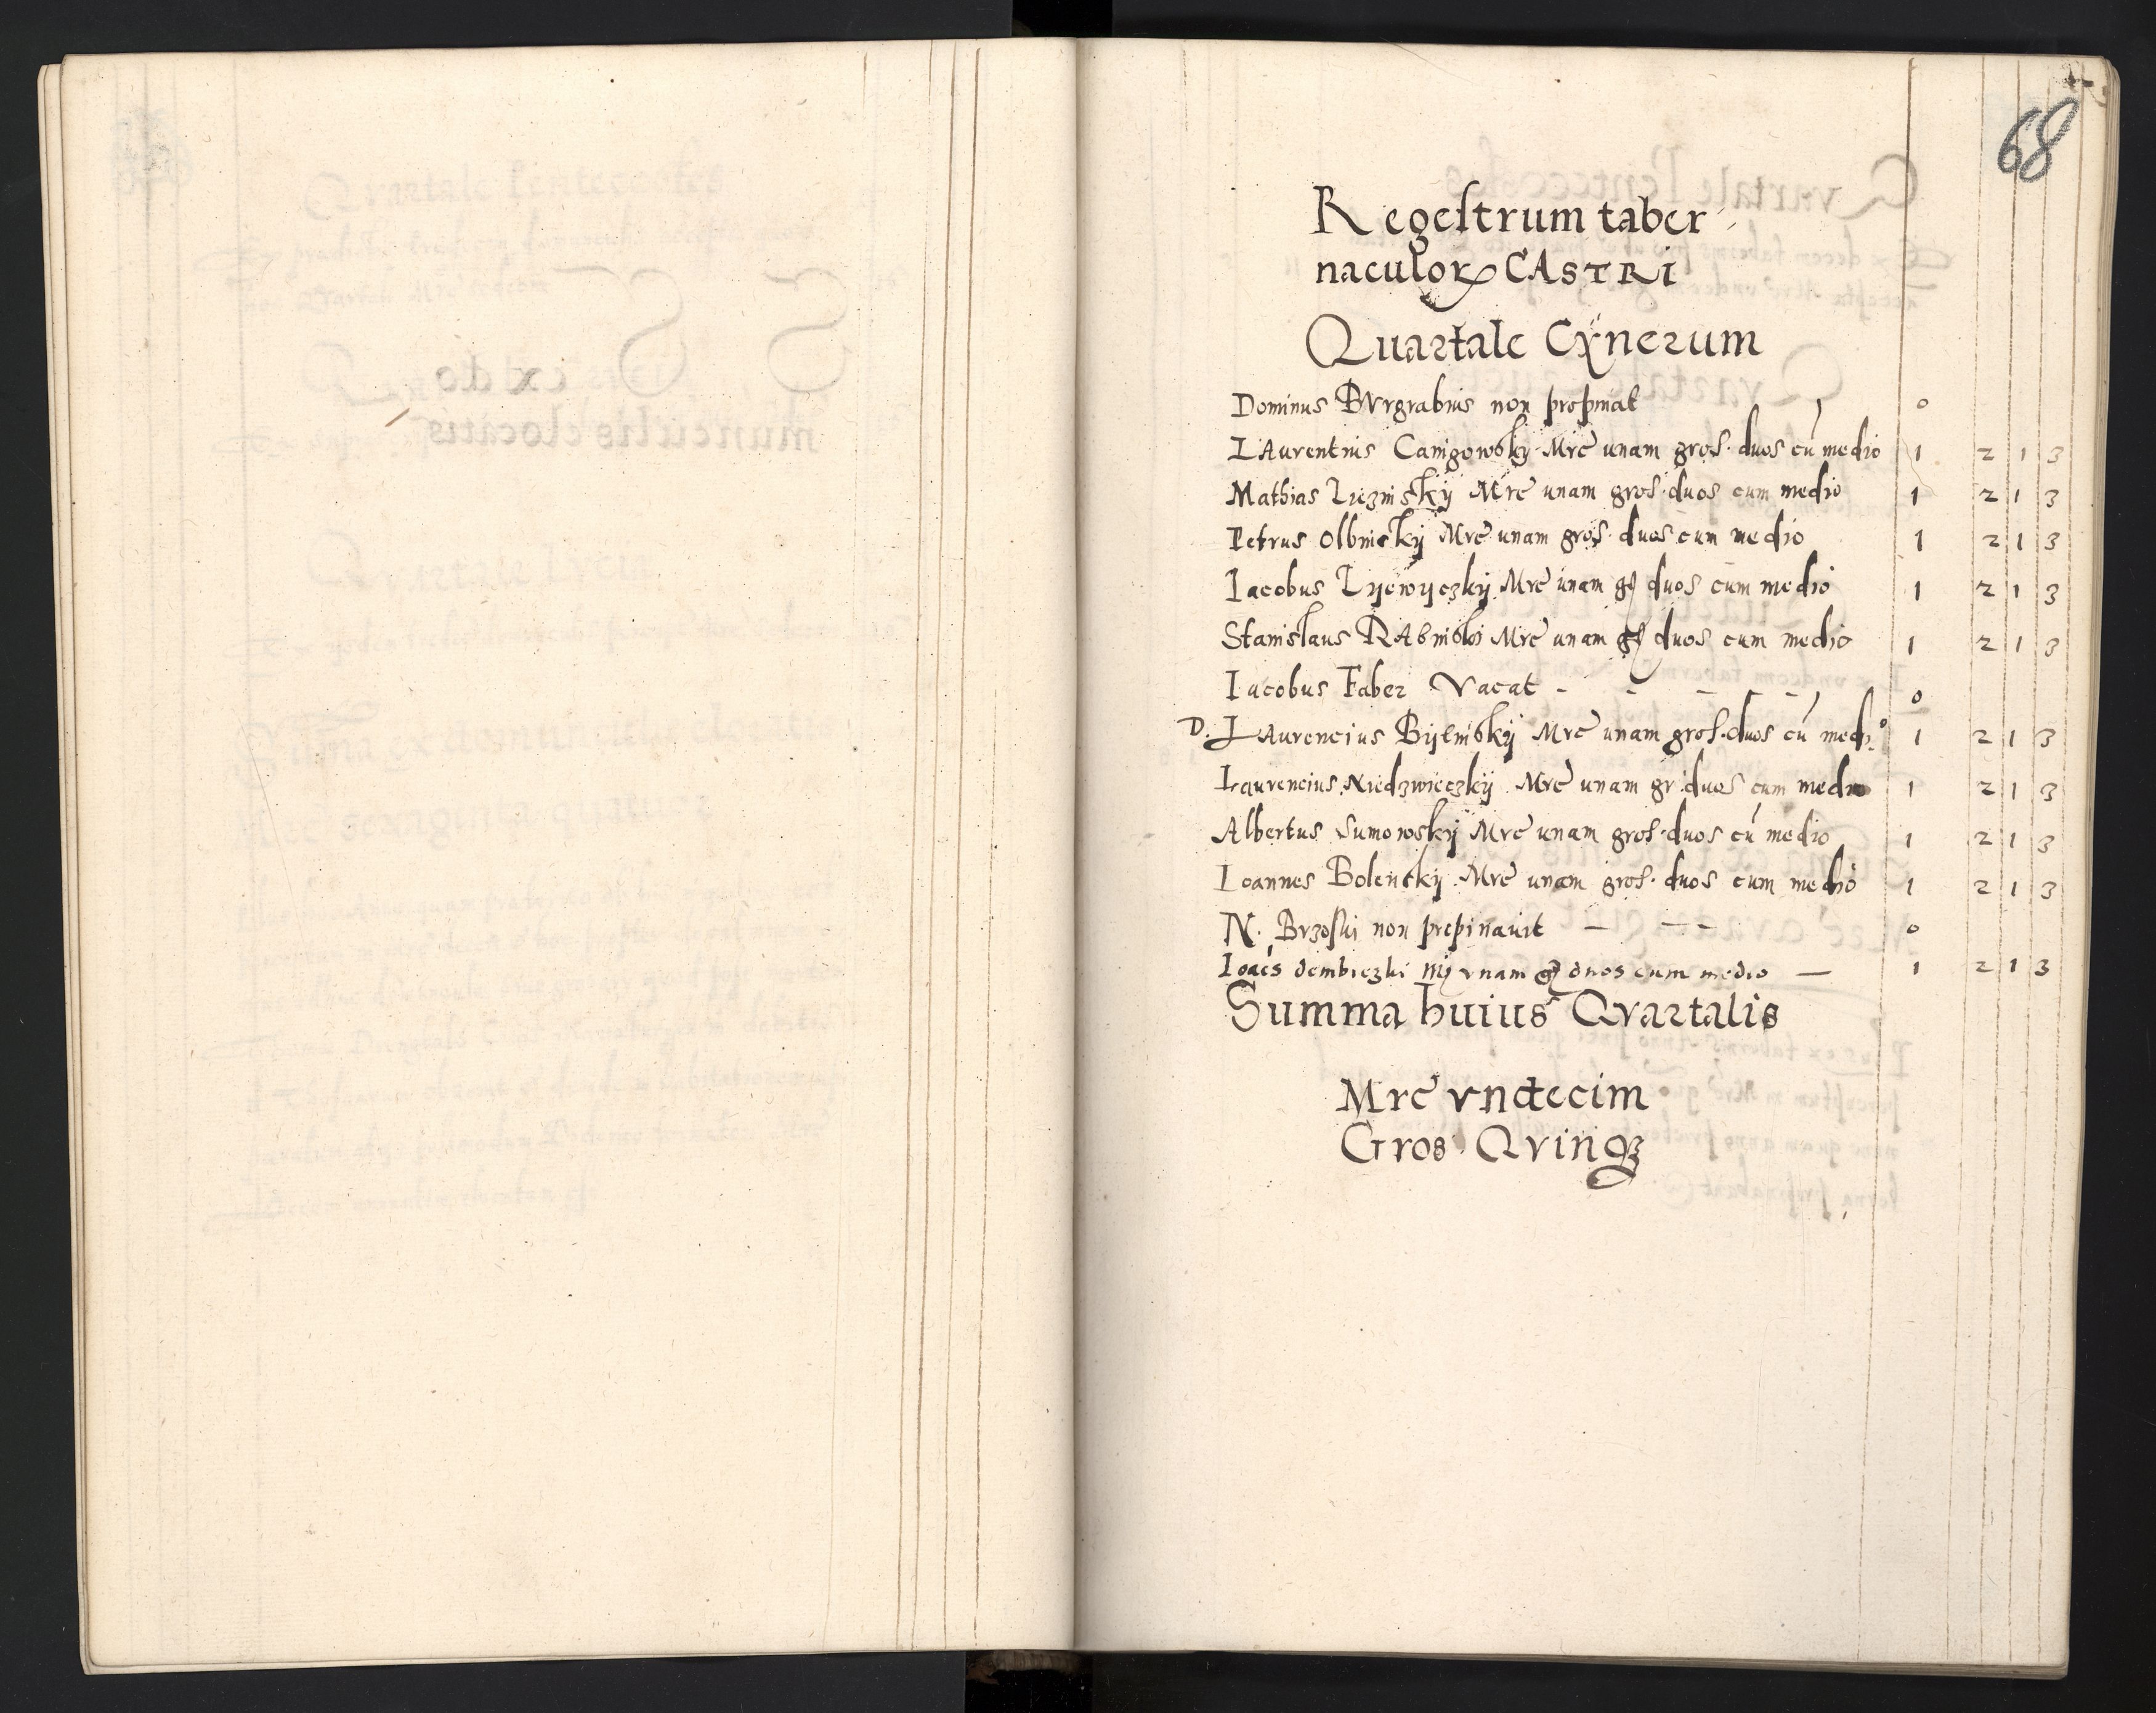 68
Regestrum taber
naculoꝝ CASTRI
Quartale Cÿnerum
Dominus BVrgrabius non propinat 0
LAurentius Mrc̃ unam gros. duos cũ medio 1 2 1 3
Mathias Mrc̃ unam gros. duos cum medio 1 2 1 3
Petrus Olbinskÿ Mrc̃ unam gros. duos cum medio 1 2 1 3
Iacobus Lÿewÿczkÿ Mrc̃ unam gꝭ duos cum medio 1 2 1 3
Stanislaus RAbinski Mrc̃ unam gꝭ duos cum medio 1 2 1 3
Iacobus Faber Vacat - - - - 0
D. LAurencius Bÿelinskÿ Mrc̃ unam gros. duos cũ medio 1 2 1 3
Laurencius Niedzwieczkÿ Mrc̃ unam gr: duos cum medio 1 2 1 3
Albertus Sumowskÿ Mrc̃ unam gros. duos cũ medio 1 2 1 3
Ioannes Bolenckÿ Mrc̃ unam gros. duos cum medio 1 2 1 3
N. Brzoski non propinauit — — 0
Ioães dembiczki mꝭ vnam gꝭ duos cum medio — 1 2 1 3
Summa huius Qvartalis
Mrc̃ vndecim
Gros. Qvinqꝫ